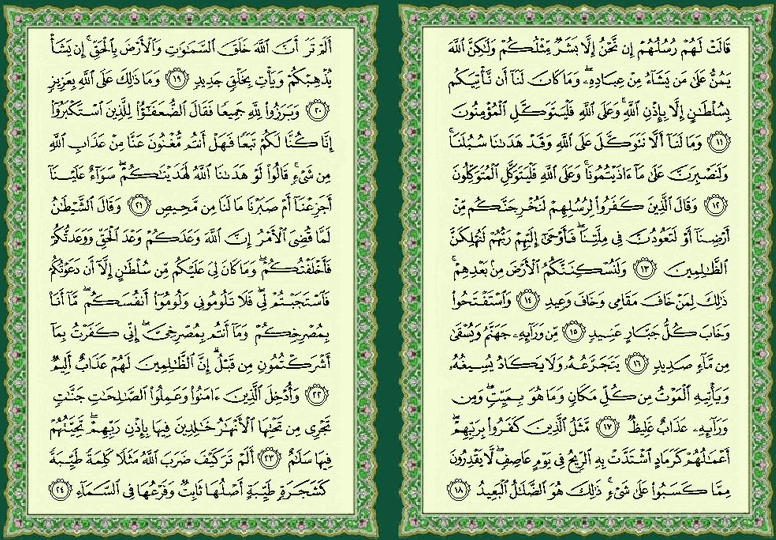 قَالَتْ لَهُمْ رُسُلُهُمْ إِن نَّحْنُ إِلَّا بَشَرٌ مِّثْلُكُمْ وَلَٰكِنَّ ٱللَّهَ
يَمُنُّ عَلَىٰ مَن يَشَآءُ مِنْ عِبَادِهِۦ ۖ وَمَا كَانَ لَنَآ أَن نَّأْتِيَكُم
بِسُلْطَٰنٍ إِلَّا بِإِذْنِ ٱللَّهِ ۚ وَعَلَى ٱللَّهِ فَلْيَتَوَكَّلِ ٱلْمُؤْمِنُونَ
١١ وَمَا لَنَآ أَلَّا نَتَوَكَّلَ عَلَى ٱللَّهِ وَقَدْ هَدَىٰنَا سُبُلَنَا ۚ
وَلَنَصْبِرَنَّ عَلَىٰ مَآ ءَاذَيْتُمُونَا ۚ وَعَلَى ٱللَّهِ فَلْيَتَوَكَّلِ ٱلْمُتَوَكِّلُونَ
١٢ وَقَالَ ٱلَّذِينَ كَفَرُوا۟ لِرُسُلِهِمْ لَنُخْرِجَنَّكُم مِّنْ
أَرْضِنَآ أَوْ لَتَعُودُنَّ فِى مِلَّتِنَا ۖ فَأَوْحَىٰٓ إِلَيْهِمْ رَبُّهُمْ لَنُهْلِكَنَّ
ٱلظَّٰلِمِينَ ١٣ وَلَنُسْكِنَنَّكُمُ ٱلْأَرْضَ مِنۢ بَعْدِهِمْ ۚ
ذَٰلِكَ لِمَنْ خَافَ مَقَامِى وَخَافَ وَعِيدِ ١٤ وَٱسْتَفْتَحُوا۟
وَخَابَ كُلُّ جَبَّارٍ عَنِيدٍ ١٥ مِّن وَرَآئِهِۦ جَهَنَّمُ وَيُسْقَىٰ
مِن مَّآءٍ صَدِيدٍ ١٦ يَتَجَرَّعُهُۥ وَلَا يَكَادُ يُسِيغُهُۥ
وَيَأْتِيهِ ٱلْمَوْتُ مِن كُلِّ مَكَانٍ وَمَا هُوَ بِمَيِّتٍ ۖ وَمِن
وَرَآئِهِۦ عَذَابٌ غَلِيظٌ ١٧ مَّثَلُ ٱلَّذِينَ كَفَرُوا۟ بِرَبِّهِمْ ۖ
أَعْمَٰلُهُمْ كَرَمَادٍ ٱشْتَدَّتْ بِهِ ٱلرِّيحُ فِى يَوْمٍ عَاصِفٍ ۖ لَّا يَقْدِرُونَ
مِمَّا كَسَبُوا۟ عَلَىٰ شَىْءٍ ۚ ذَٰلِكَ هُوَ ٱلضَّلَٰلُ ٱلْبَعِيدُ ١٨
أَلَمْ تَرَ أَنَّ ٱللَّهَ خَلَقَ ٱلسَّمَٰوَٰتِ وَٱلْأَرْضَ بِٱلْحَقِّ ۚ إِن يَشَأْ
يُذْهِبْكُمْ وَيَأْتِ بِخَلْقٍ جَدِيدٍ ١٩ وَمَا ذَٰلِكَ عَلَى ٱللَّهِ بِعَزِيزٍ
٢٠ وَبَرَزُوا۟ لِلَّهِ جَمِيعًا فَقَالَ ٱلضُّعَفَٰٓؤُا۟ لِلَّذِينَ ٱسْتَكْبَرُوٓا۟
إِنَّا كُنَّا لَكُمْ تَبَعًا فَهَلْ أَنتُم مُّغْنُونَ عَنَّا مِنْ عَذَابِ ٱللَّهِ
مِن شَىْءٍ ۚ قَالُوا۟ لَوْ هَدَىٰنَا ٱللَّهُ لَهَدَيْنَٰكُمْ ۖ سَوَآءٌ عَلَيْنَآ
أَجَزِعْنَآ أَمْ صَبَرْنَا مَا لَنَا مِن مَّحِيصٍ ٢١ وَقَالَ ٱلشَّيْطَٰنُ
لَمَّا قُضِىَ ٱلْأَمْرُ إِنَّ ٱللَّهَ وَعَدَكُمْ وَعْدَ ٱلْحَقِّ وَوَعَدتُّكُمْ
فَأَخْلَفْتُكُمْ ۖ وَمَا كَانَ لِىَ عَلَيْكُم مِّن سُلْطَٰنٍ إِلَّآ أَن دَعَوْتُكُمْ
فَٱسْتَجَبْتُمْ لِى ۖ فَلَا تَلُومُونِى وَلُومُوٓا۟ أَنفُسَكُم ۖ مَّآ أَنَا۠
بِمُصْرِخِكُمْ وَمَآ أَنتُم بِمُصْرِخِىَّ ۖ إِنِّى كَفَرْتُ بِمَآ
أَشْرَكْتُمُونِ مِن قَبْلُ ۗ إِنَّ ٱلظَّٰلِمِينَ لَهُمْ عَذَابٌ أَلِيمٌ
٢٢ وَأُدْخِلَ ٱلَّذِينَ ءَامَنُوا۟ وَعَمِلُوا۟ ٱلصَّٰلِحَٰتِ جَنَّٰتٍ
تَجْرِى مِن تَحْتِهَا ٱلْأَنْهَٰرُ خَٰلِدِينَ فِيهَا بِإِذْنِ رَبِّهِمْ ۖ تَحِيَّتُهُمْ
فِيهَا سَلَٰمٌ ٢٣ أَلَمْ تَرَ كَيْفَ ضَرَبَ ٱللَّهُ مَثَلًا كَلِمَةً طَيِّبَةً
كَشَجَرَةٍ طَيِّبَةٍ أَصْلُهَا ثَابِتٌ وَفَرْعُهَا فِى ٱلسَّمَآءِ ٢٤